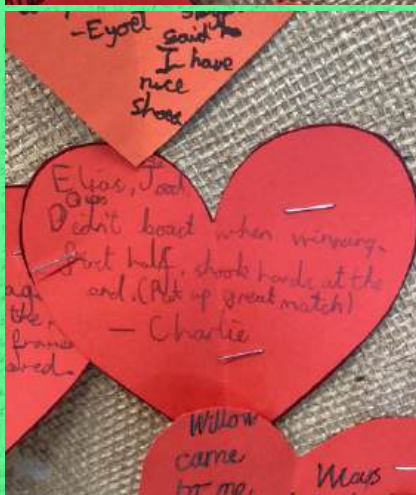 -Eyoel
said to
I have
nice
shoes
Elias, Joel,
Didn't boast when winning.
first half, shook hands at the
end. (Put up great match)
— Charlie
the
Willow
came
to me
Mays